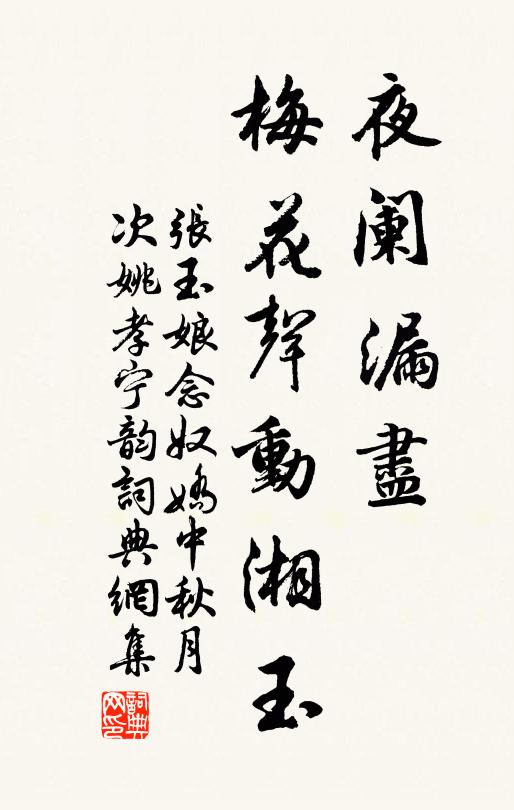 夜闌漏盡
梅花聲動湘玉
張玉娘念奴嬌中秋月
次姚孝宁韵詞典網集
詞典網印